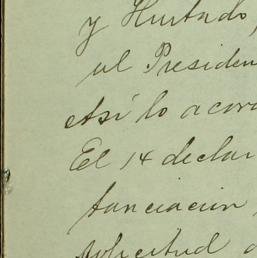 y Hurtado,
al Presiden
Así lo acor
El 14 declar
tanciacion
solicitud